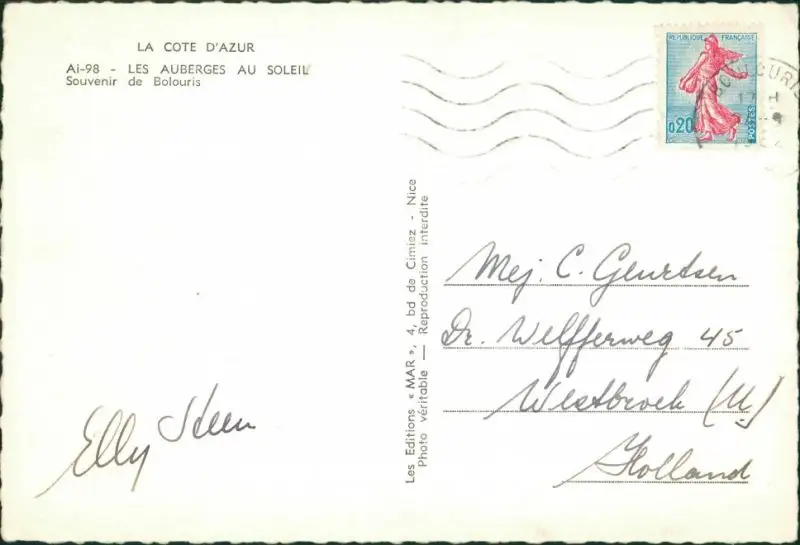 LA COTE D'AZUR
Ai-98 - LES AUBERGES AU SOLEIL
Souvenir de Bolouris
REPUBLIQUE FRANÇAISE
0,20
POSTES
Les Editions « MAR », 4, bd de Cimiez - Nice
Photo véritable — Reproduction interdite
Mej. C. Geurtsen
Dr. Welfferweg 45
Westbroek (U)
Holland
Elly Steen